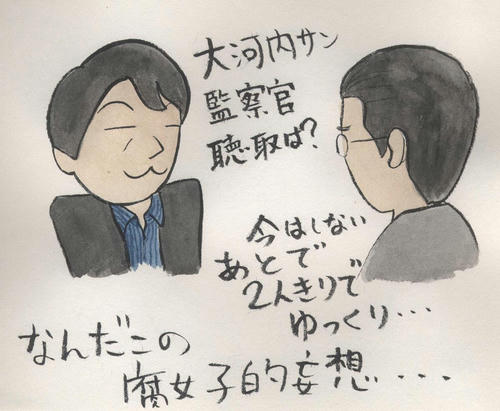 大河内サン
監察官
聴取は?
今はしない
あとで
2人きりで
ゆっくり・・・
なんだこの
腐女子的妄想・・・・